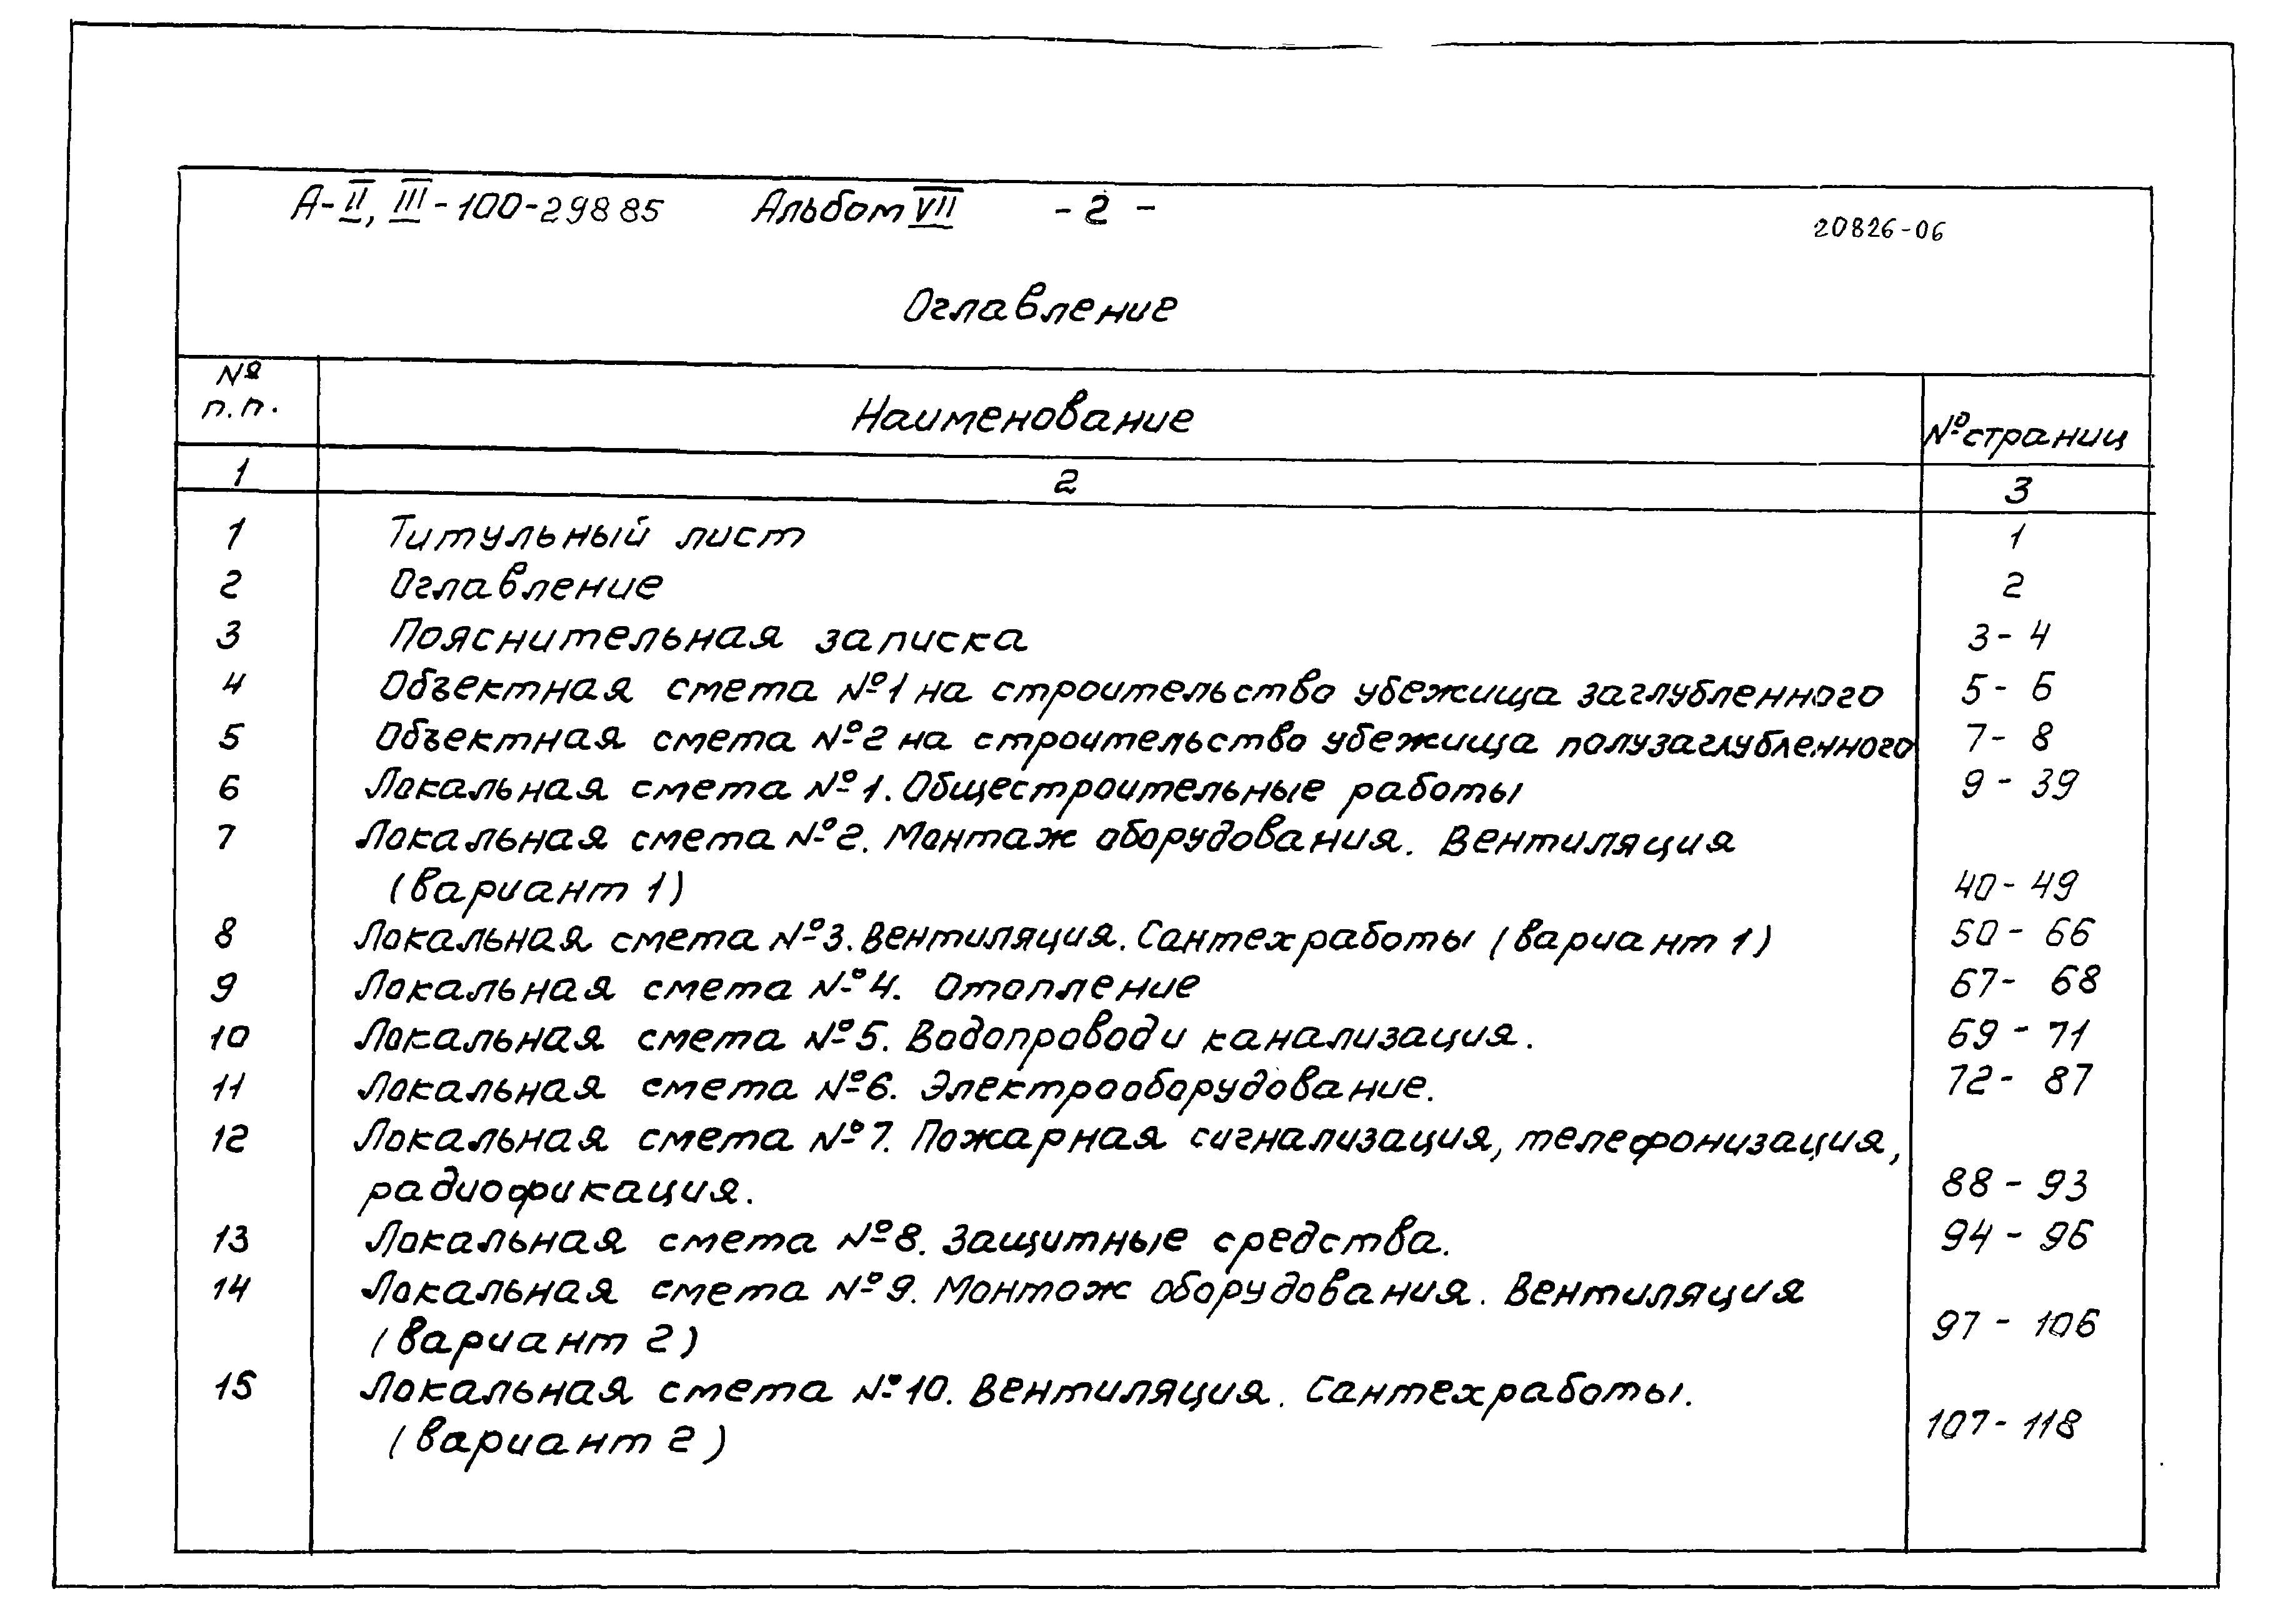 А-II, III-100-298 85 Альбом VII - 2 - 20826-06
Оглавление
№ п.п. Наименование № страниц
1 2 3
1 Титульный лист 1
2 Оглавление 2
3 Пояснительная записка 3- 4
4 Объектная смета №1 на строительство убежища заглубленного 5- 6
5 Объектная смета №2 на строительство убежища полузаглубленного 7- 8
6 Локальная смета №1. Общестроительные работы 9 - 39
7 Локальная смета №2. Монтаж оборудования. Вентиляция
(вариант 1) 40- 49
8 Локальная смета №3. Вентиляция. Сантехработы (вариант 1) 50 - 66
9 Локальная смета №4. Отопление 67- 68
10 Локальная смета №5. Водопровод и канализация. 69 - 71
11 Локальная смета №6. Электрооборудование. 72- 87
12 Локальная смета №7. Пожарная сигнализация, телефонизация,
радиофикация. 88 - 93
13 Локальная смета №8. Защитные средства. 94 - 96
14 Локальная смета №9. Монтаж оборудования. Вентиляция
(вариант 2) 97 - 106
15 Локальная смета №10. Вентиляция. Сантехработы.
(вариант 2) 107- 118